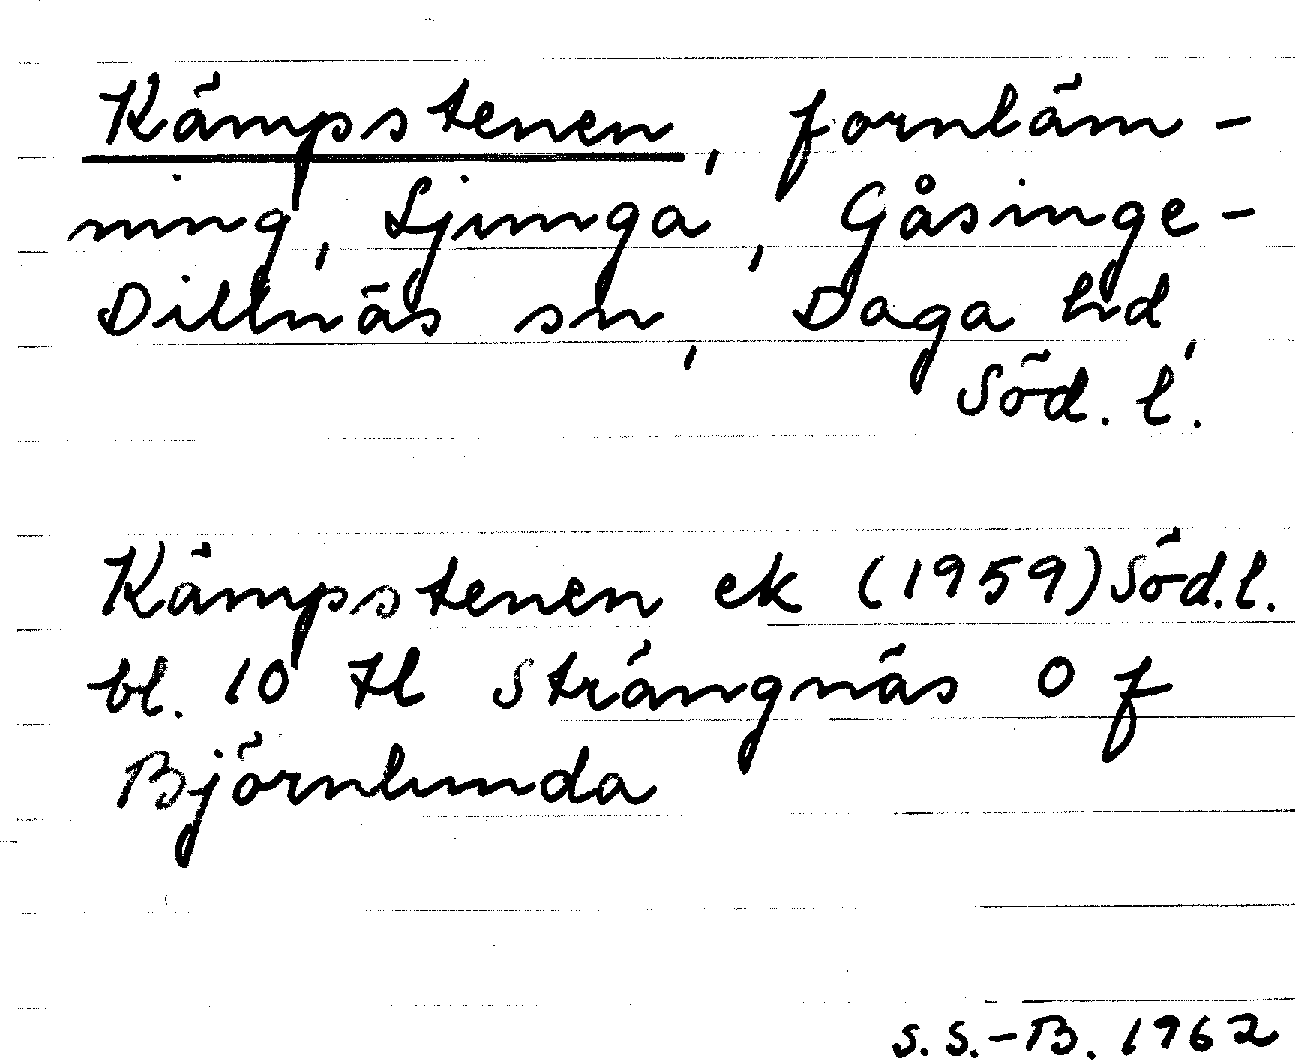 Kämpstenen, fornläm-
ning, Ljunga, Gåsinge-
Dillnäs sn, Daga hd,
Söd. l.
Kämpstenen ek (1959) Söd. l.
bl. 10 tl Strängnäs O f
Björnlunda
S. S.-B. 1962